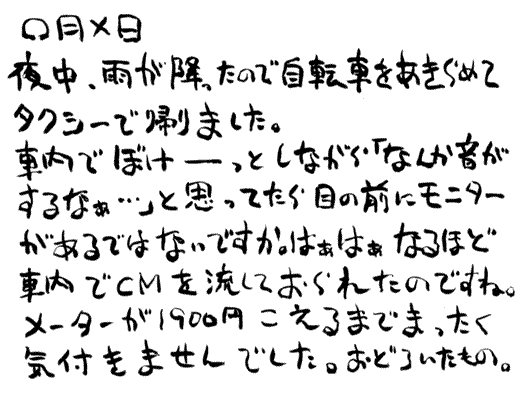 〇月×日
夜中、雨が降ったので自転車をあきらめて
タクシーで帰りました。
車内でぼけーーっとしながら「なんか音が
するなぁ…」と思ってたら目の前にモニター
があるではないですか。はぁはぁなるほど
車内でCMを流しておられたのですね。
メーターが1900円こえるまでまったく
気付きませんでした。おどろいたもの。